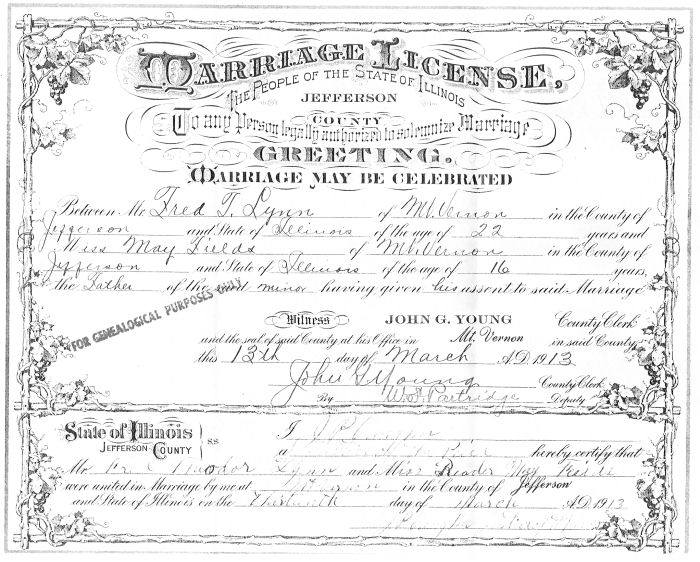 MARRIAGE LICENSE,
THE PEOPLE OF THE STATE OF ILLINOIS
JEFFERSON
COUNTY
To any Person legally authorized to solemnize Marriage
GREETING.
MARRIAGE MAY BE CELEBRATED
Between Mr Fred T. Lynn of Mt. Vernon in the County of
Jefferson and State of Illinois of the age of 22 years and
Miss May Fields of Mt. Vernon in the County of
Jefferson and State of Illinois of the age of 16 years,
the Father of the said minor having given his assent to said Marriage
(FOR GENEALOGICAL PURPOSES ONLY
Witness JOHN G. YOUNG County Clerk
and the seal of said County at his Office in Mt. Vernon in said County
this 13th day of March A.D. 1913
John G Young County Clerk
By Partridge Deputy
State of Illinois
JEFFERSON COUNTY } SS
I
a hereby certify that
Mr Lynn and Miss May
were united in Marriage by me at in the County of Jefferson
and State of Illinois on the Thirteenth day of March A.D. 1913